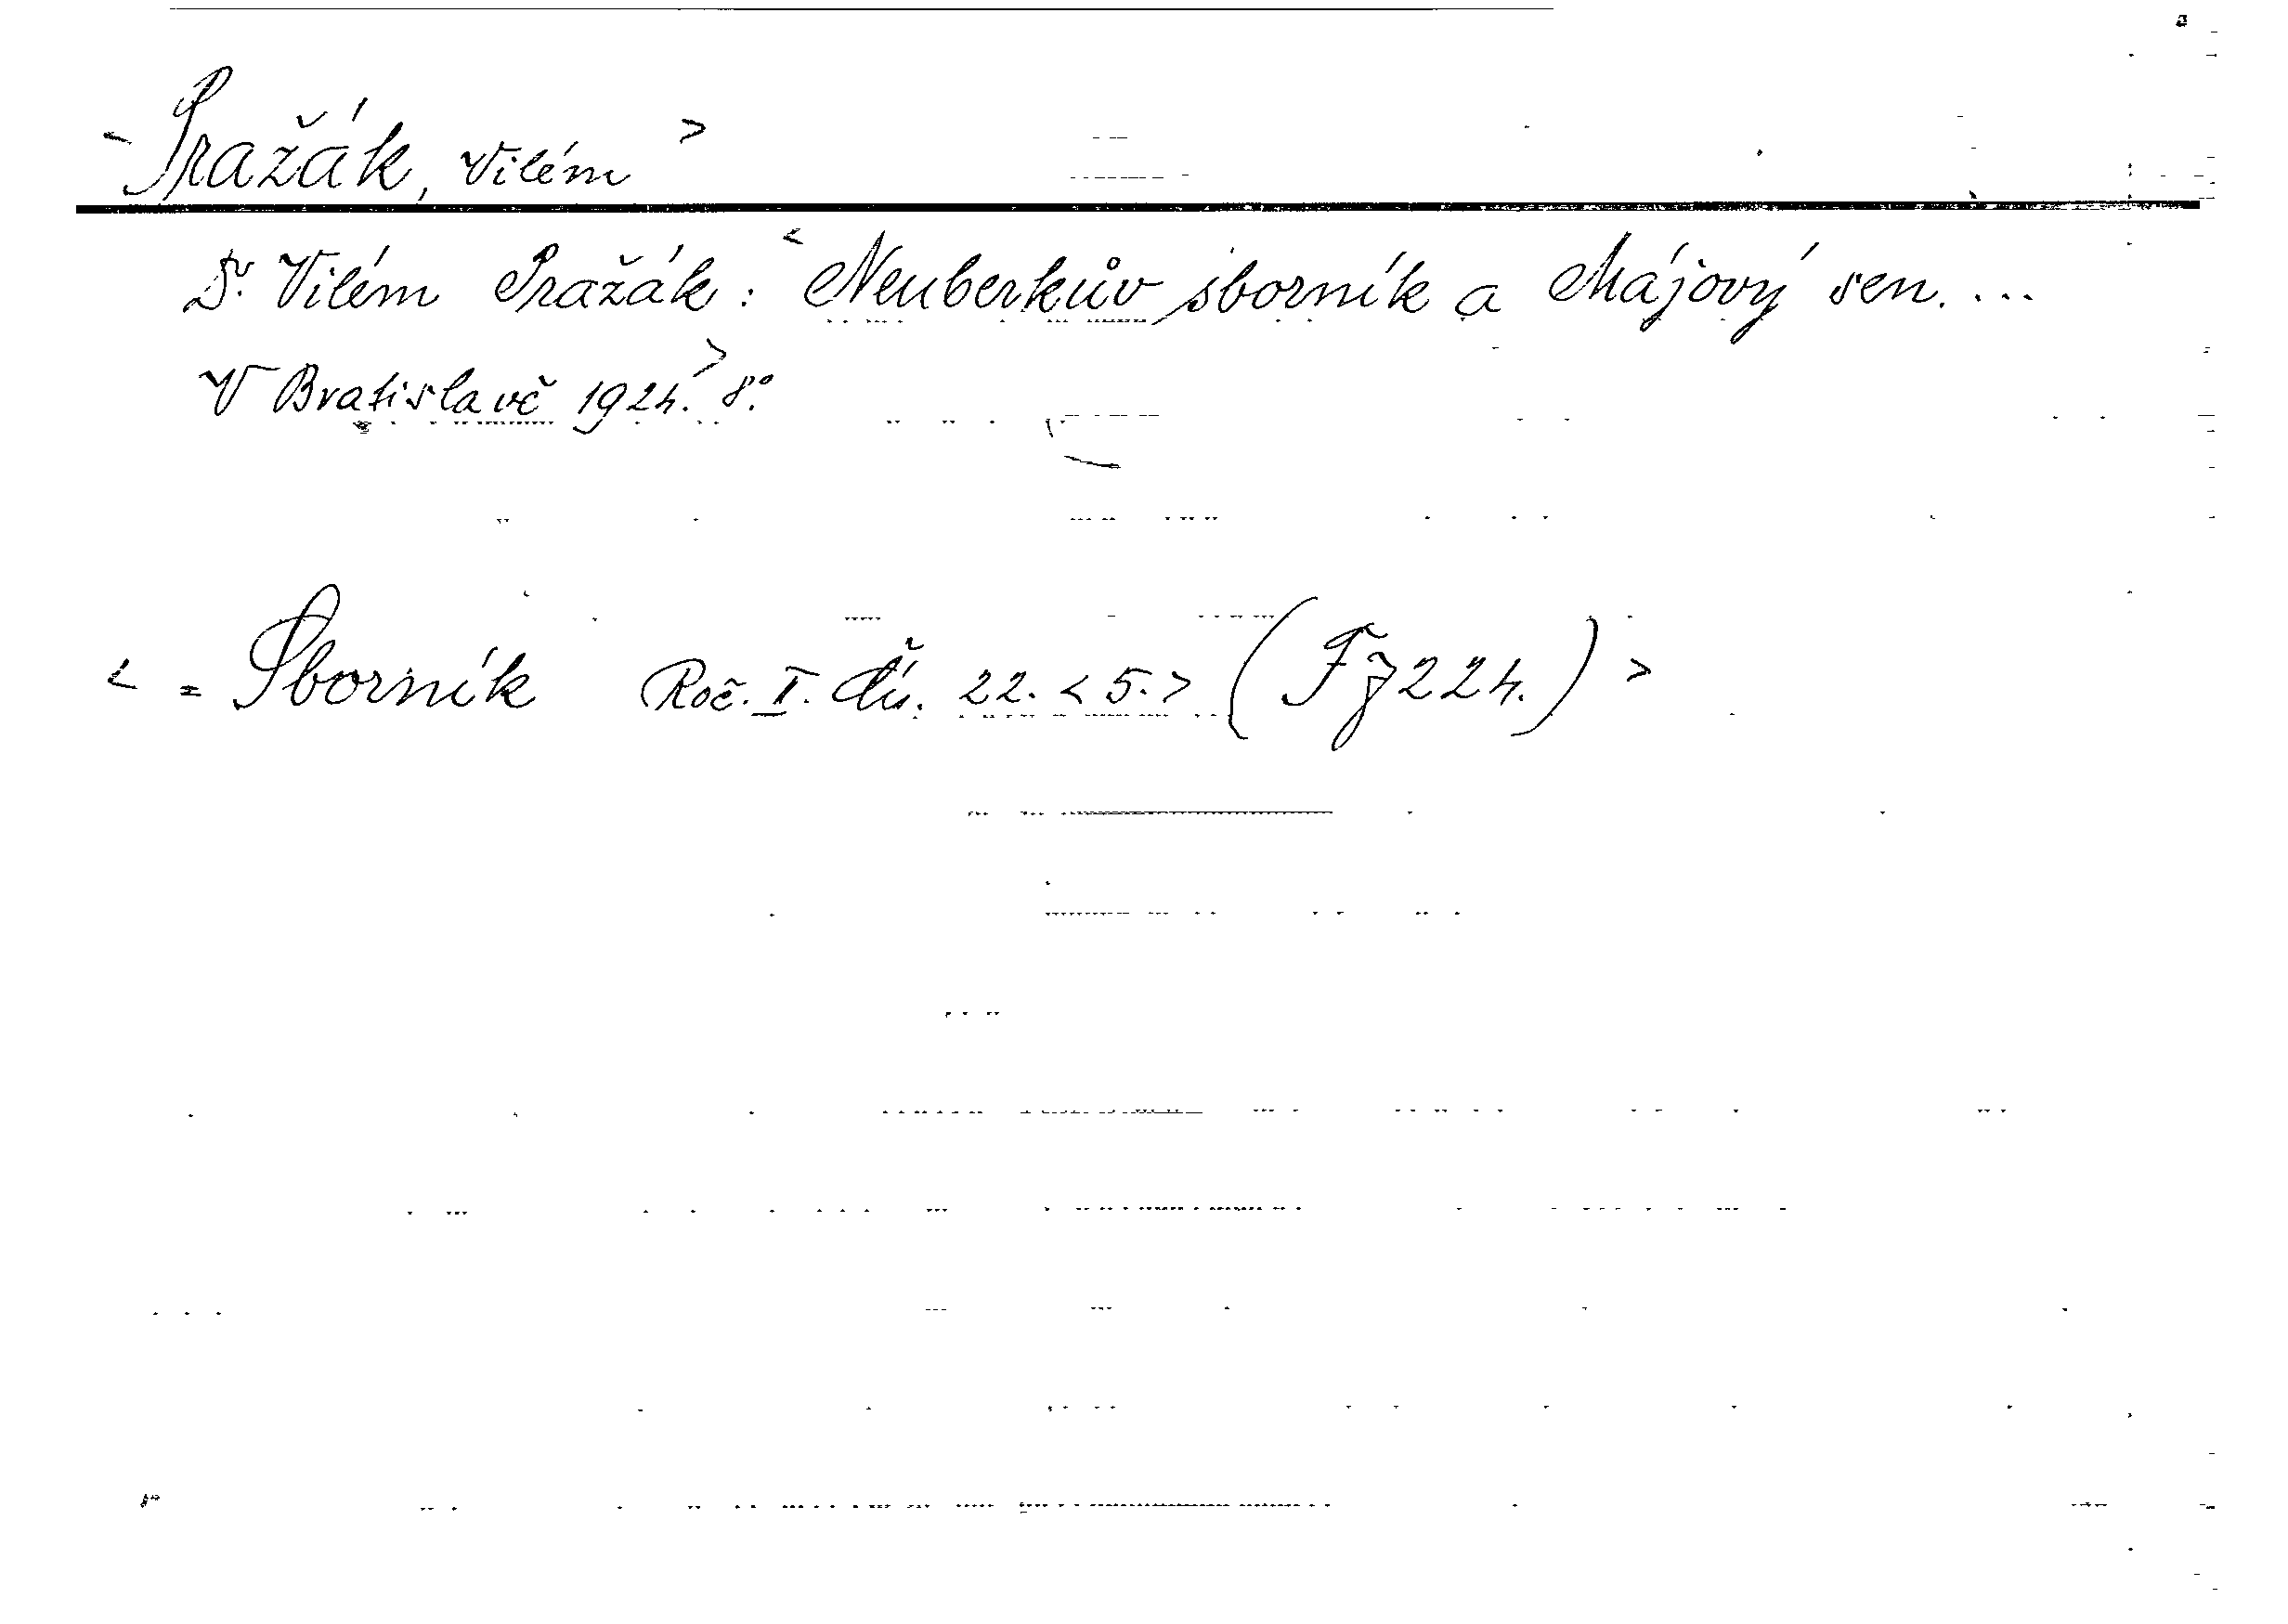 < Pražák, Vilém >
Dr. Vilém Pražák: < Neuberkův sborník a Májový sen. ...
V Bratislavě 1924. > 8°.
< = Sborník Roč. I. čís. 22. < 5. > (Fj 224.) >